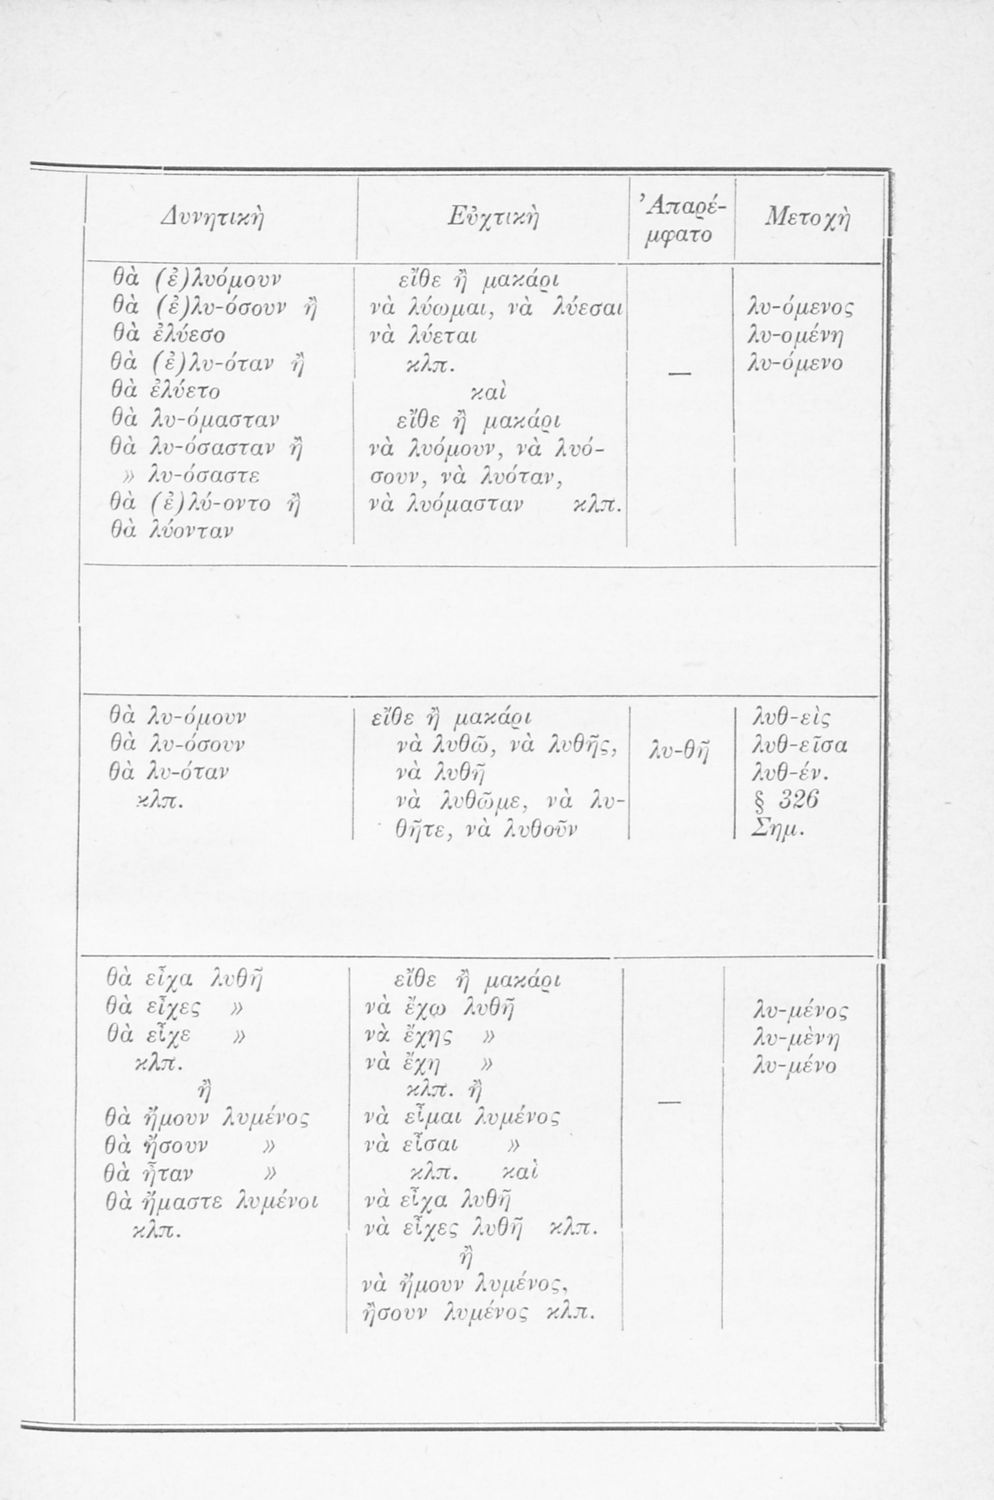 Δυνητικὴ
Εὐχτικὴ
Ἀπαρέ-
μφατο
Μετοχὴ
θὰ (ἐ)λυόμουν
θὰ (ἐ)λυ-όσουν ἢ
θὰ ἐλύεσο
θὰ (ἐ)λυ-όταν ἢ
θὰ ἐλύετο
θὰ λυ-όμασταν
θὰ λυ-όσασταν ἢ
» λυ-όσαστε
θὰ (ἐ)λύ-οντο ἢ
θὰ λύονταν
εἴθε ἢ μακάρι
νὰ λύωμαι, νὰ λύεσαι
νὰ λύεται
κλπ.
καὶ
εἴθε ἢ μακάρι
νὰ λυόμουν, νὰ λυό-
σουν, νὰ λυόταν,
νὰ λυόμασταν κλπ.
—
λυ-όμενος
λυ-ομένη
λυ-όμενο
θὰ λυ-όμουν
θὰ λυ-όσουν
θὰ λυ-όταν
κλπ.
εἴθε ἢ μακάρι
νὰ λυθῶ, νὰ λυθῆς,
νὰ λυθῆ
νὰ λυθῶμε, νὰ λυ-
θῆτε, νὰ λυθοῦν
λυ-θῆ
λυθ-εὶς
λυθ-εῖσα
λυθ-έν.
§ 326
Σημ.
θὰ εἶχα λυθῆ
θὰ εἶχες »
θὰ εἶχε »
κλπ.
ἢ
θὰ ἤμουν λυμένος
θὰ ἤσουν »
θὰ ἦταν »
θὰ ἤμαστε λυμένοι
κλπ.
εἴθε ἢ μακάρι
νὰ ἔχω λυθῆ
νὰ ἔχης »
νὰ ἔχη »
κλπ. ἢ
νὰ εἶμαι λυμένος
νὰ εἶσαι »
κλπ. καὶ
νὰ εἶχα λυθῆ
νὰ εἶχες λυθῆ κλπ.
ἢ
νὰ ἤμουν λυμένος,
ἤσουν λυμένος κλπ.
—
λυ-μένος
λυ-μὲνη
λυ-μένο